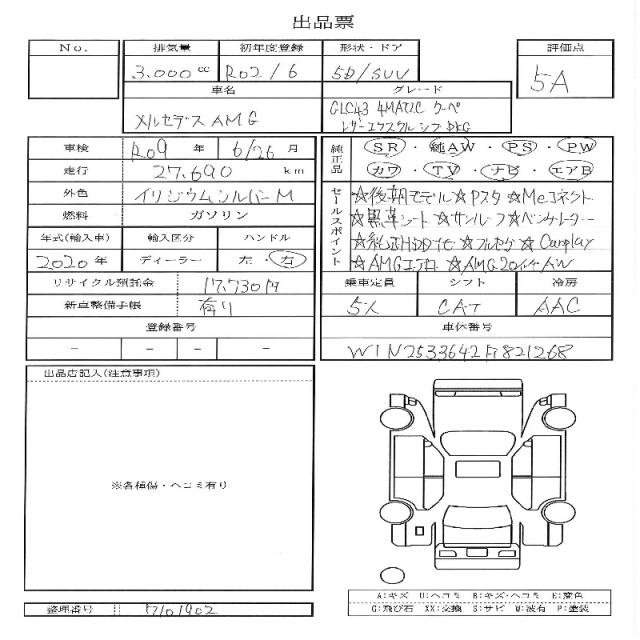 出品票
No. 排気量 初年度登録 形状・ドア 評価点
3.000 cc R02/6 5D/SUV 5A
車名 グレード
メルセデスAMG GLC43 4MATIC クーペ
レザーエクスクルシブPKG
車検 R09 年 6/26 月
純正品 SR・純AW・PS・PW
走行 27.690 km
カワ・TV・ナビ・エアB
外色 イリジウムシルバーM
セールスポイント ☆後期モデル☆Pスタ☆Meコネクト
燃料 ガソリン
☆黒革シート☆サンルーフ☆ベンチレーター
年式(輸入車) 輸入区分 ハンドル
☆純正HDDナビ☆フルセグ☆Carplay
2020年 ディーラー 左・右
☆AMGエアロ☆AMG20インチAW
リサイクル預託金 17.730円
乗車定員 シフト 冷房
新車整備手帳 有り
5人 CAT AAC
登録番号 車体番号
－ － － －
W1N2533642F821268
出品店記入(注意事項)
※各種傷・ヘコミ有り
A:キズ U:ヘコミ B:キズ・ヘコミ E:変色
G:飛び石 XX:交換 S:サビ W:波有 P:塗装
整理番号 7101902